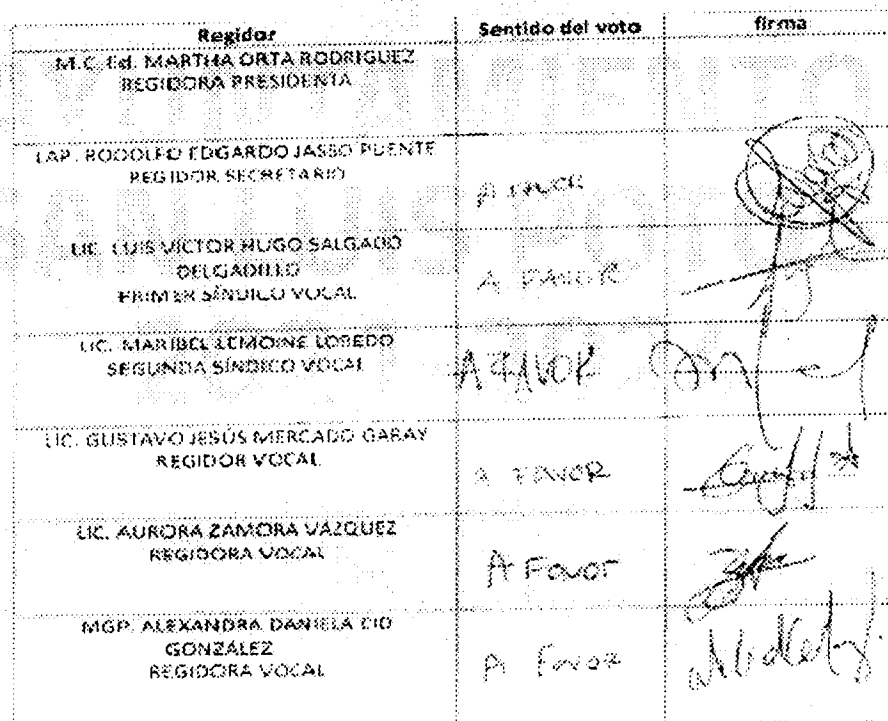 Regidor Sentido del voto firma
M.C. Ed. MARTHA ORTA RODRIGUEZ
REGIDORA PRESIDENTA
LAP. RODOLFO EDGARDO JASSO PUENTE
REGIDOR SECRETARIO
A FAVOR
LIC. LUIS VICTOR HUGO SALGADO
DELGADILLO
PRIMER SÍNDICO VOCAL
A FAVOR
LIC. MARIBEL LEMOINE LOREDO
SEGUNDA SÍNDICO VOCAL
A FAVOR
LIC. GUSTAVO JESÚS MERCADO GARAY
REGIDOR VOCAL
A FAVOR
LIC. AURORA ZAMORA VÁZQUEZ
REGIDORA VOCAL
A Favor
MGP. ALEXANDRA DANIELA CID
GONZÁLEZ
REGIDORA VOCAL
A Favor